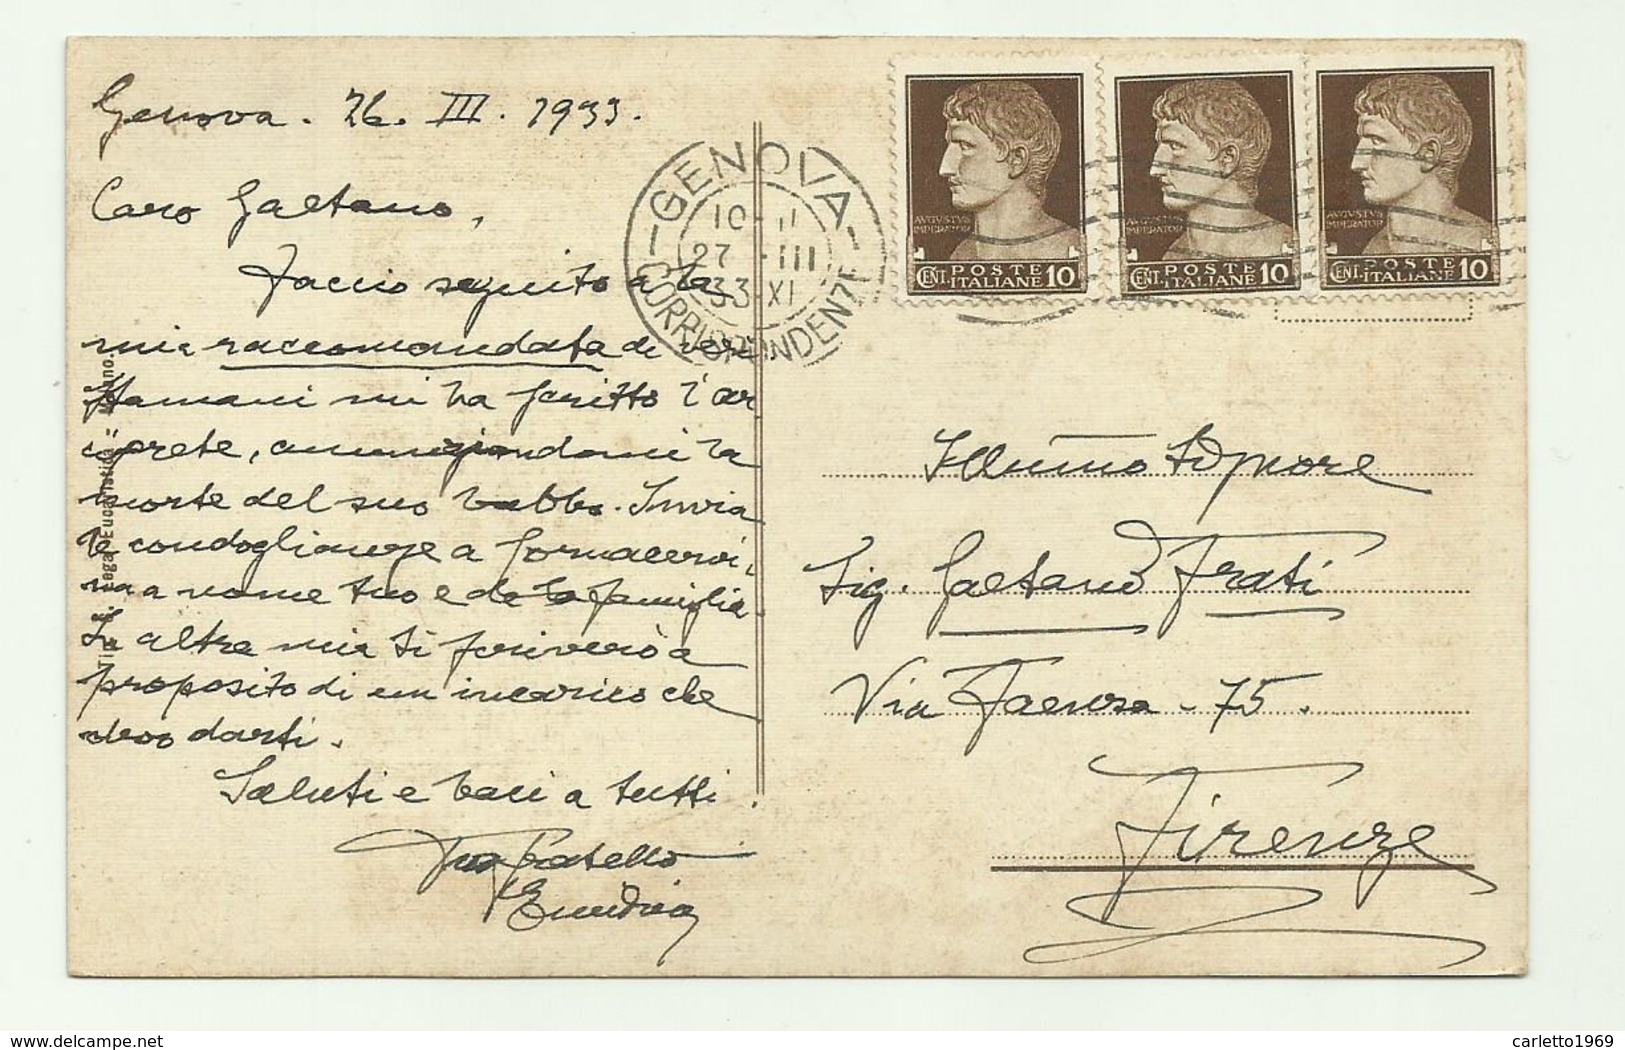 Genova. 26. III. 1933.
Caro Gaetano,
Faccio seguito a la
mia raccomandata di ieri
Stamani mi ha scritto l'ar
ciprete, annunziandomi la
morte del suo babbo. Invia
le condoglianze a
a nome tuo e de la famiglia
In altra mia ti scriverò a
proposito di un incarico che
devo darti.
Saluti e baci a tutti.
Tuo fratello
Tip. Lega Eucaristica - Milano.
GENOVA
10-11
27 III
33 XI
CORRISPONDENZE
AVGVSTVS
IMPERATOR
CENT. POSTE ITALIANE 10
AVGVSTVS
IMPERATOR
CENT. POSTE ITALIANE 10
AVGVSTVS
IMPERATOR
CENT. POSTE ITALIANE 10
Ill.mo Signore
Sig. Gaetano Frati
Via Faenza - 75.
Firenze
delcampe.net
carletto1969